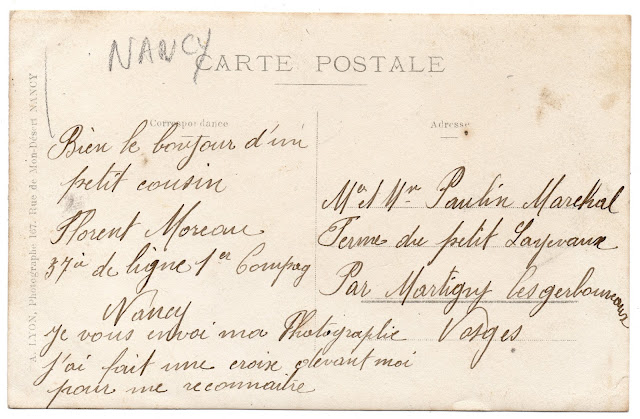 NANCY
CARTE POSTALE
Correspondance
Adresse
A. LYON, Photographe 167, Rue de Mon-Désert NANCY
Bien le bonjour d'un
petit cousin
Florent Moreau
37è de ligne 1er Compag
Nancy
Je vous envoi ma Photographie
j'ai fait une croix devant moi
pour me reconnaitre
Mr et Mr Paulin Marechal
Ferme du petit
Par Martigny lesgerbonvaux
Vosges